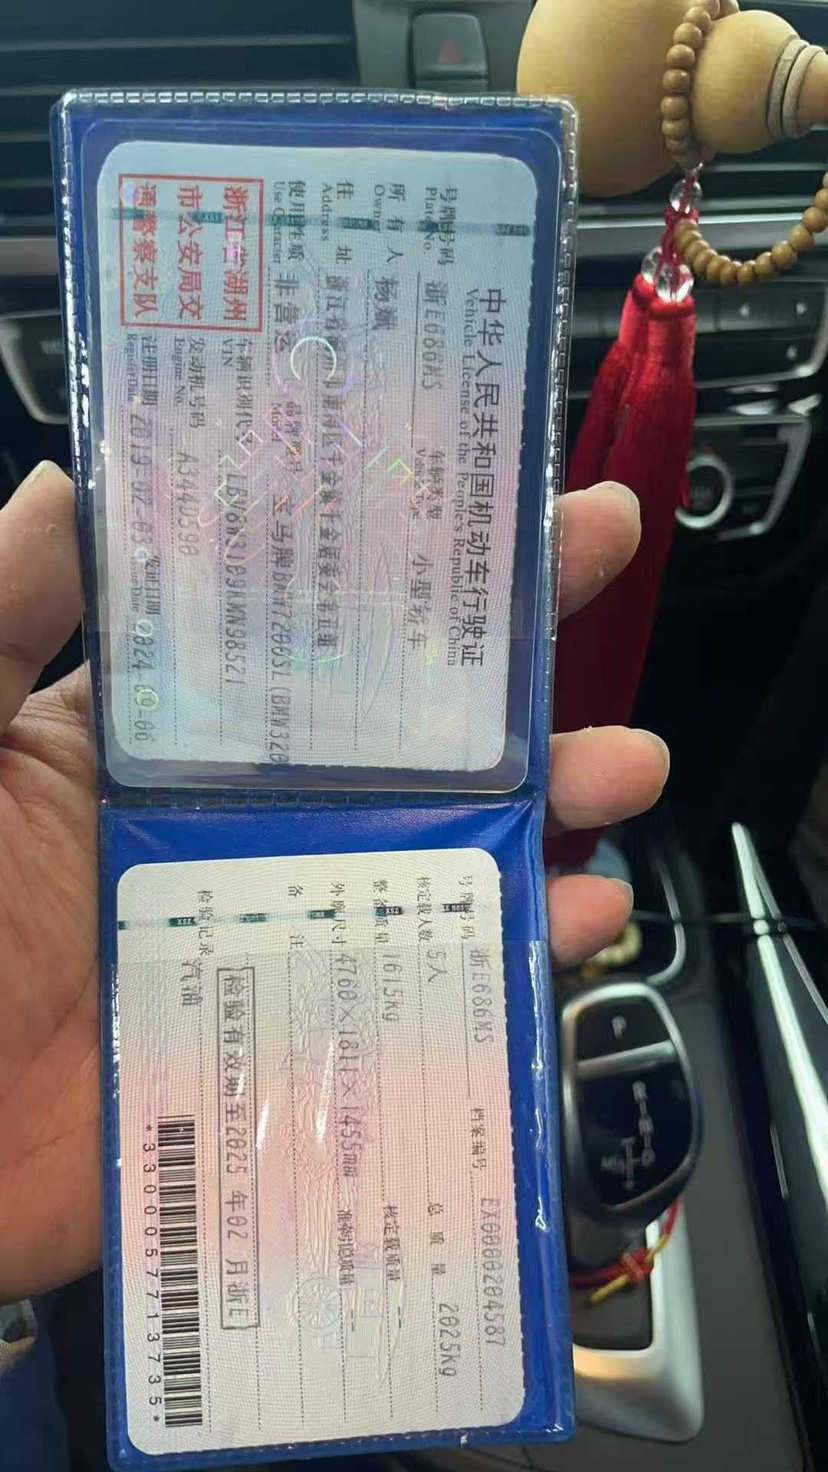 中华人民共和国机动车行驶证
Vehicle License of the People's Republic of China
号牌号码 浙E686MS 车辆类型 小型轿车
Plate No.
所有人
Owner
住址
Address
使用性质 非营运 品牌型号 宝马牌BMW7200SL(BMW320
Use Character Model
浙江省湖州
市公安局交
通警察支队
车辆识别代号
VIN
发动机号码 A3440390
Engine No.
注册日期 2019-02-03 发证日期 2024-09-06
Register Date Issue Date
号牌号码 浙E686MS 档案编号 EX0000204587
核定载人数 5人 总质量 2025kg
整备质量 1615kg 核定载质量 --
外廓尺寸 4760×1811×1455mm 准牵引总质量 --
备注
检验有效期至2025年02月浙E
检验记录 汽油
*3300057713735*
P